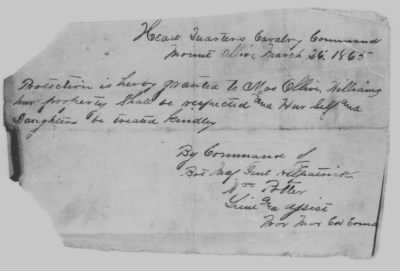 Head Quarters Cavalry Command
Mount Olive March 26, 1865
Protection is herby granted to Mrs Ollive Williams
hur property Shall be respected and Hur Self and
Daughters be treated Kindley
By Command of
Bvt Maj Genl Kilpatrick
Wm Potter
Lieut & a
Cav Comd